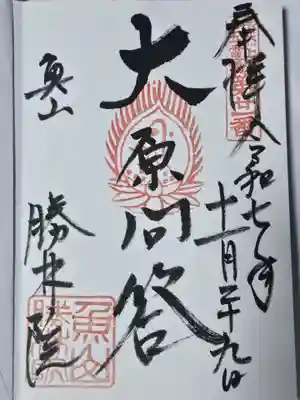 奉拝
令和七年
十一月二十九日
大原問答
魚山
勝林院